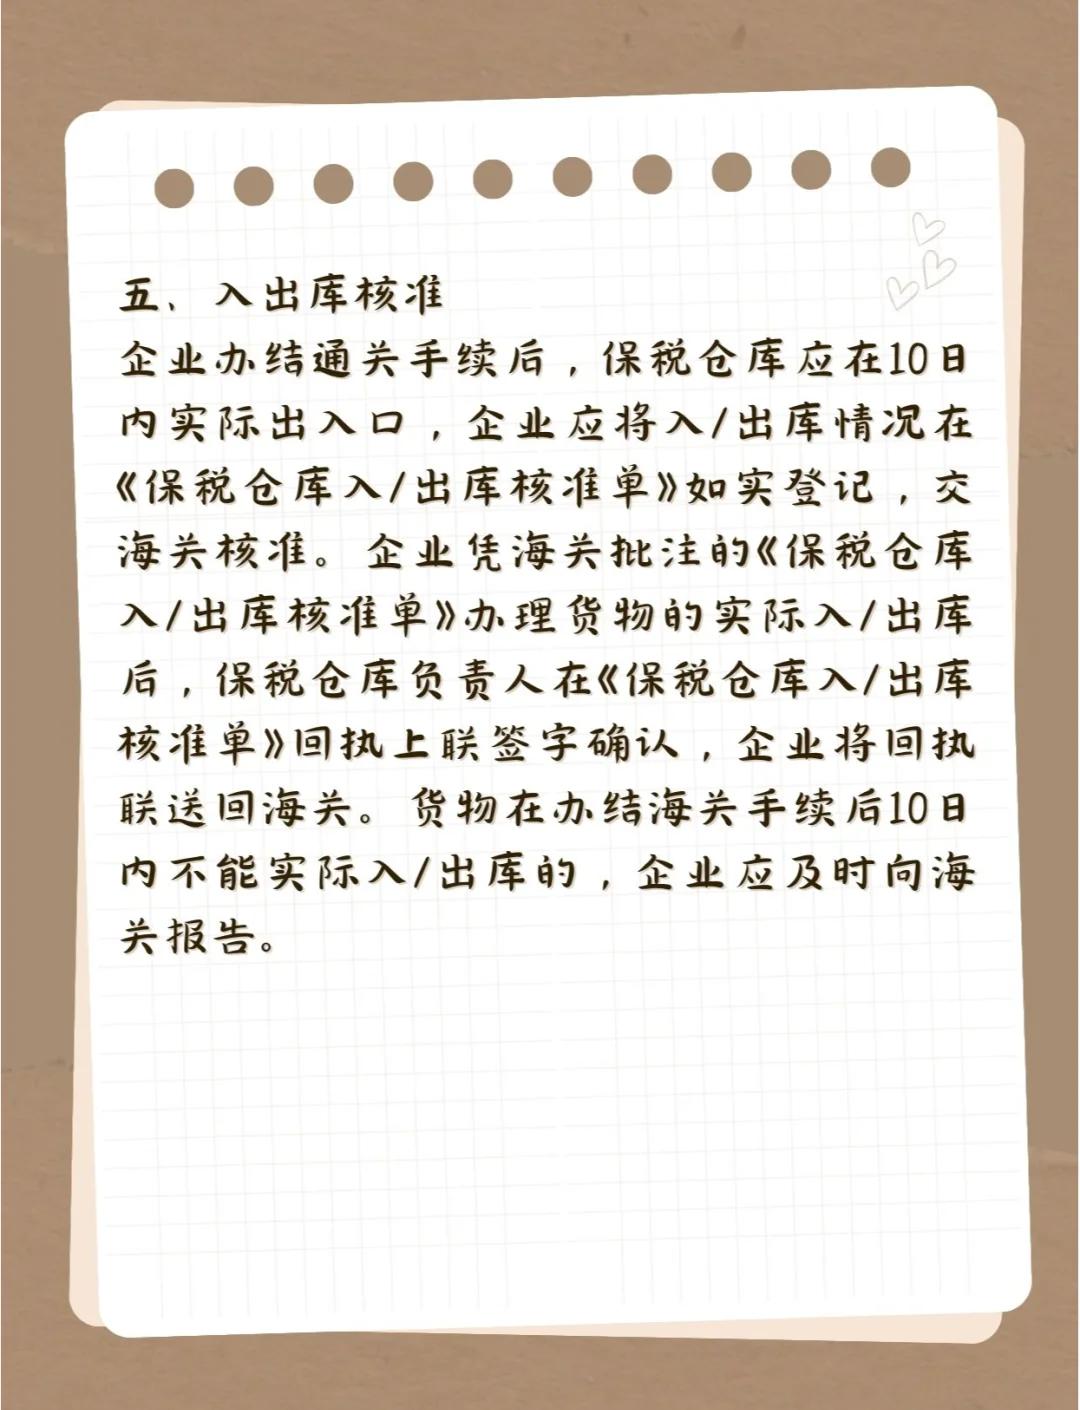 五、入出库核准
企业办结通关手续后，保税仓库应在10日
内实际出入口，企业应将入/出库情况在
《保税仓库入/出库核准单》如实登记，交
海关核准。企业凭海关批注的《保税仓库
入/出库核准单》办理货物的实际入/出库
后，保税仓库负责人在《保税仓库入/出库
核准单》回执上联签字确认，企业将回执
联送回海关。货物在办结海关手续后10日
内不能实际入/出库的，企业应及时向海
关报告。